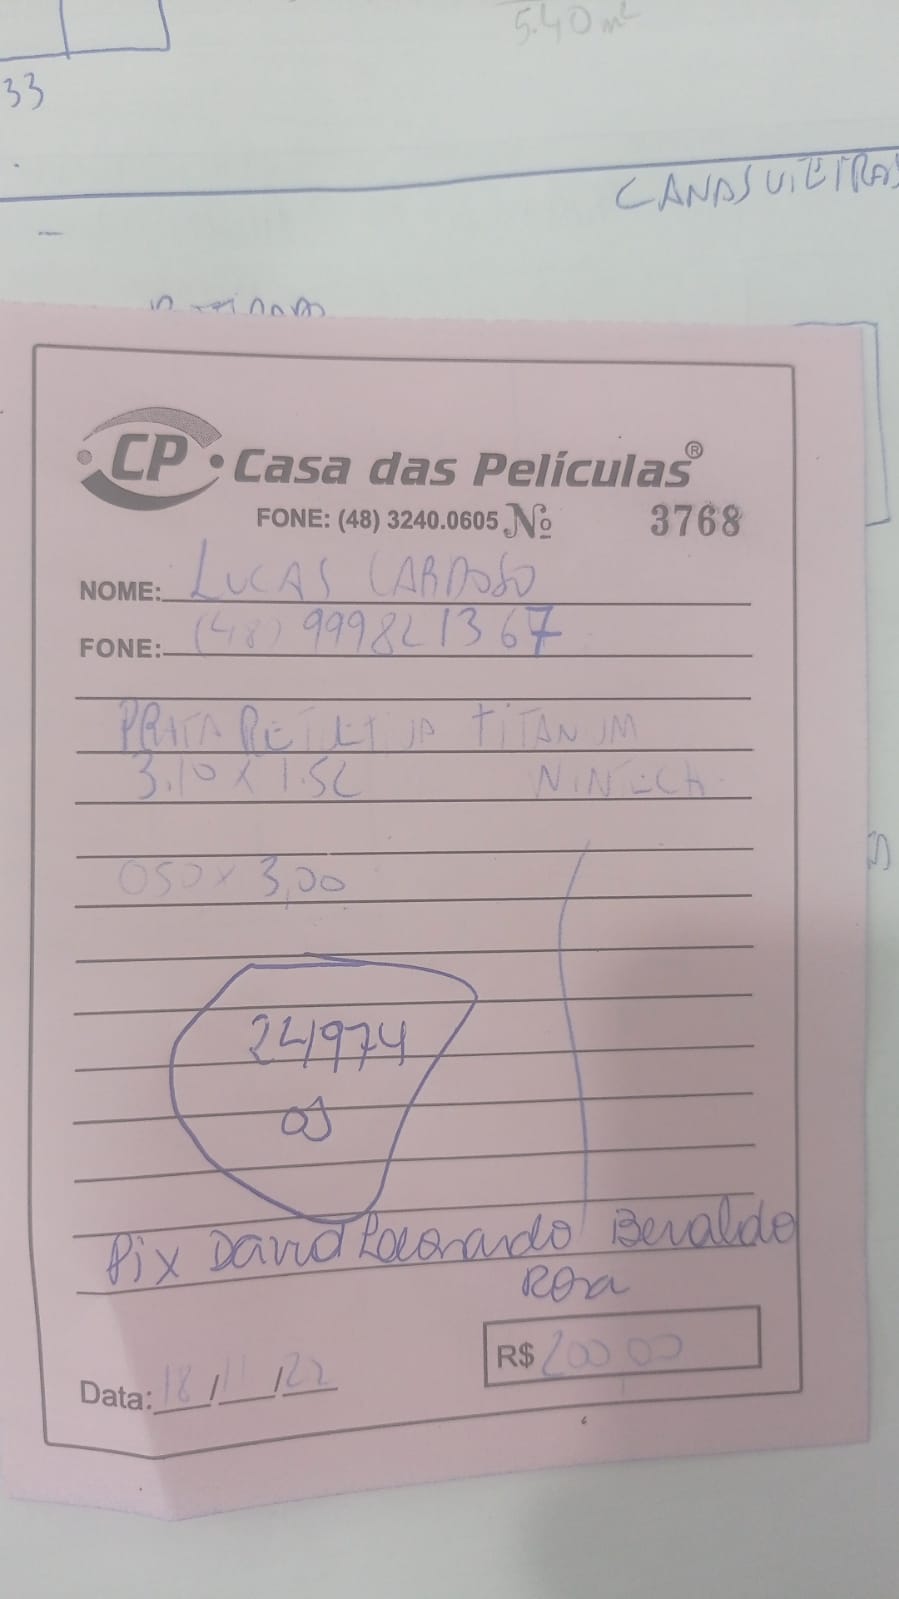 5.40 m²
33
CANASVIEIRAS
CP Casa das Películas®
FONE: (48) 3240.0605 Nº 3768
NOME: LUCAS CARDOSO
FONE: (48) 999821367
PRATA REFLETIVA TITANIUM
3.10 x 1.52
050 x 3,00
24974
OS
Pix David Leonardo Beraldo
Rosa
R$ 200 00
Data: 18/11/22